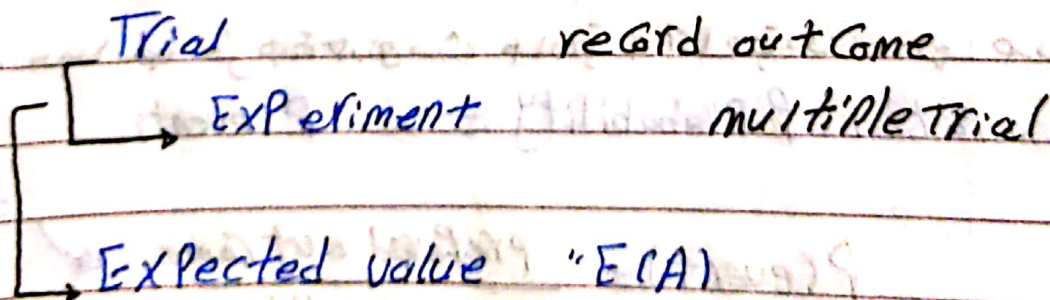 Trial record outcome
Experiment multiple Trial
Expected value "E(A)